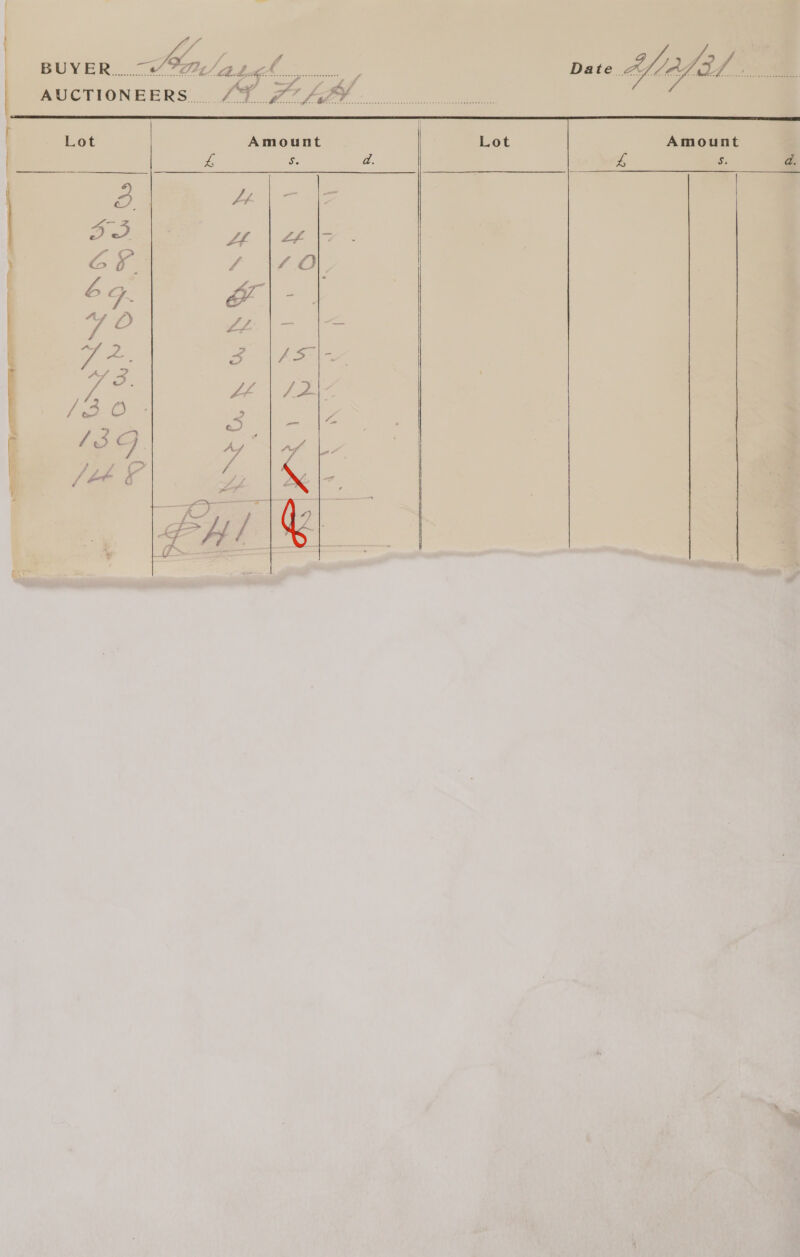 BUYER
Date 2/12/31
AUCTIONEERS
Lot Amount Lot Amount
£ s. d. £ s. d.
3 4 - -
53 4 4 -
68 1 10
69 -
70 4 - -
72 3 15 -
73 4 12 -
130 3 - -
139 7 7 -
148 4 -
£41